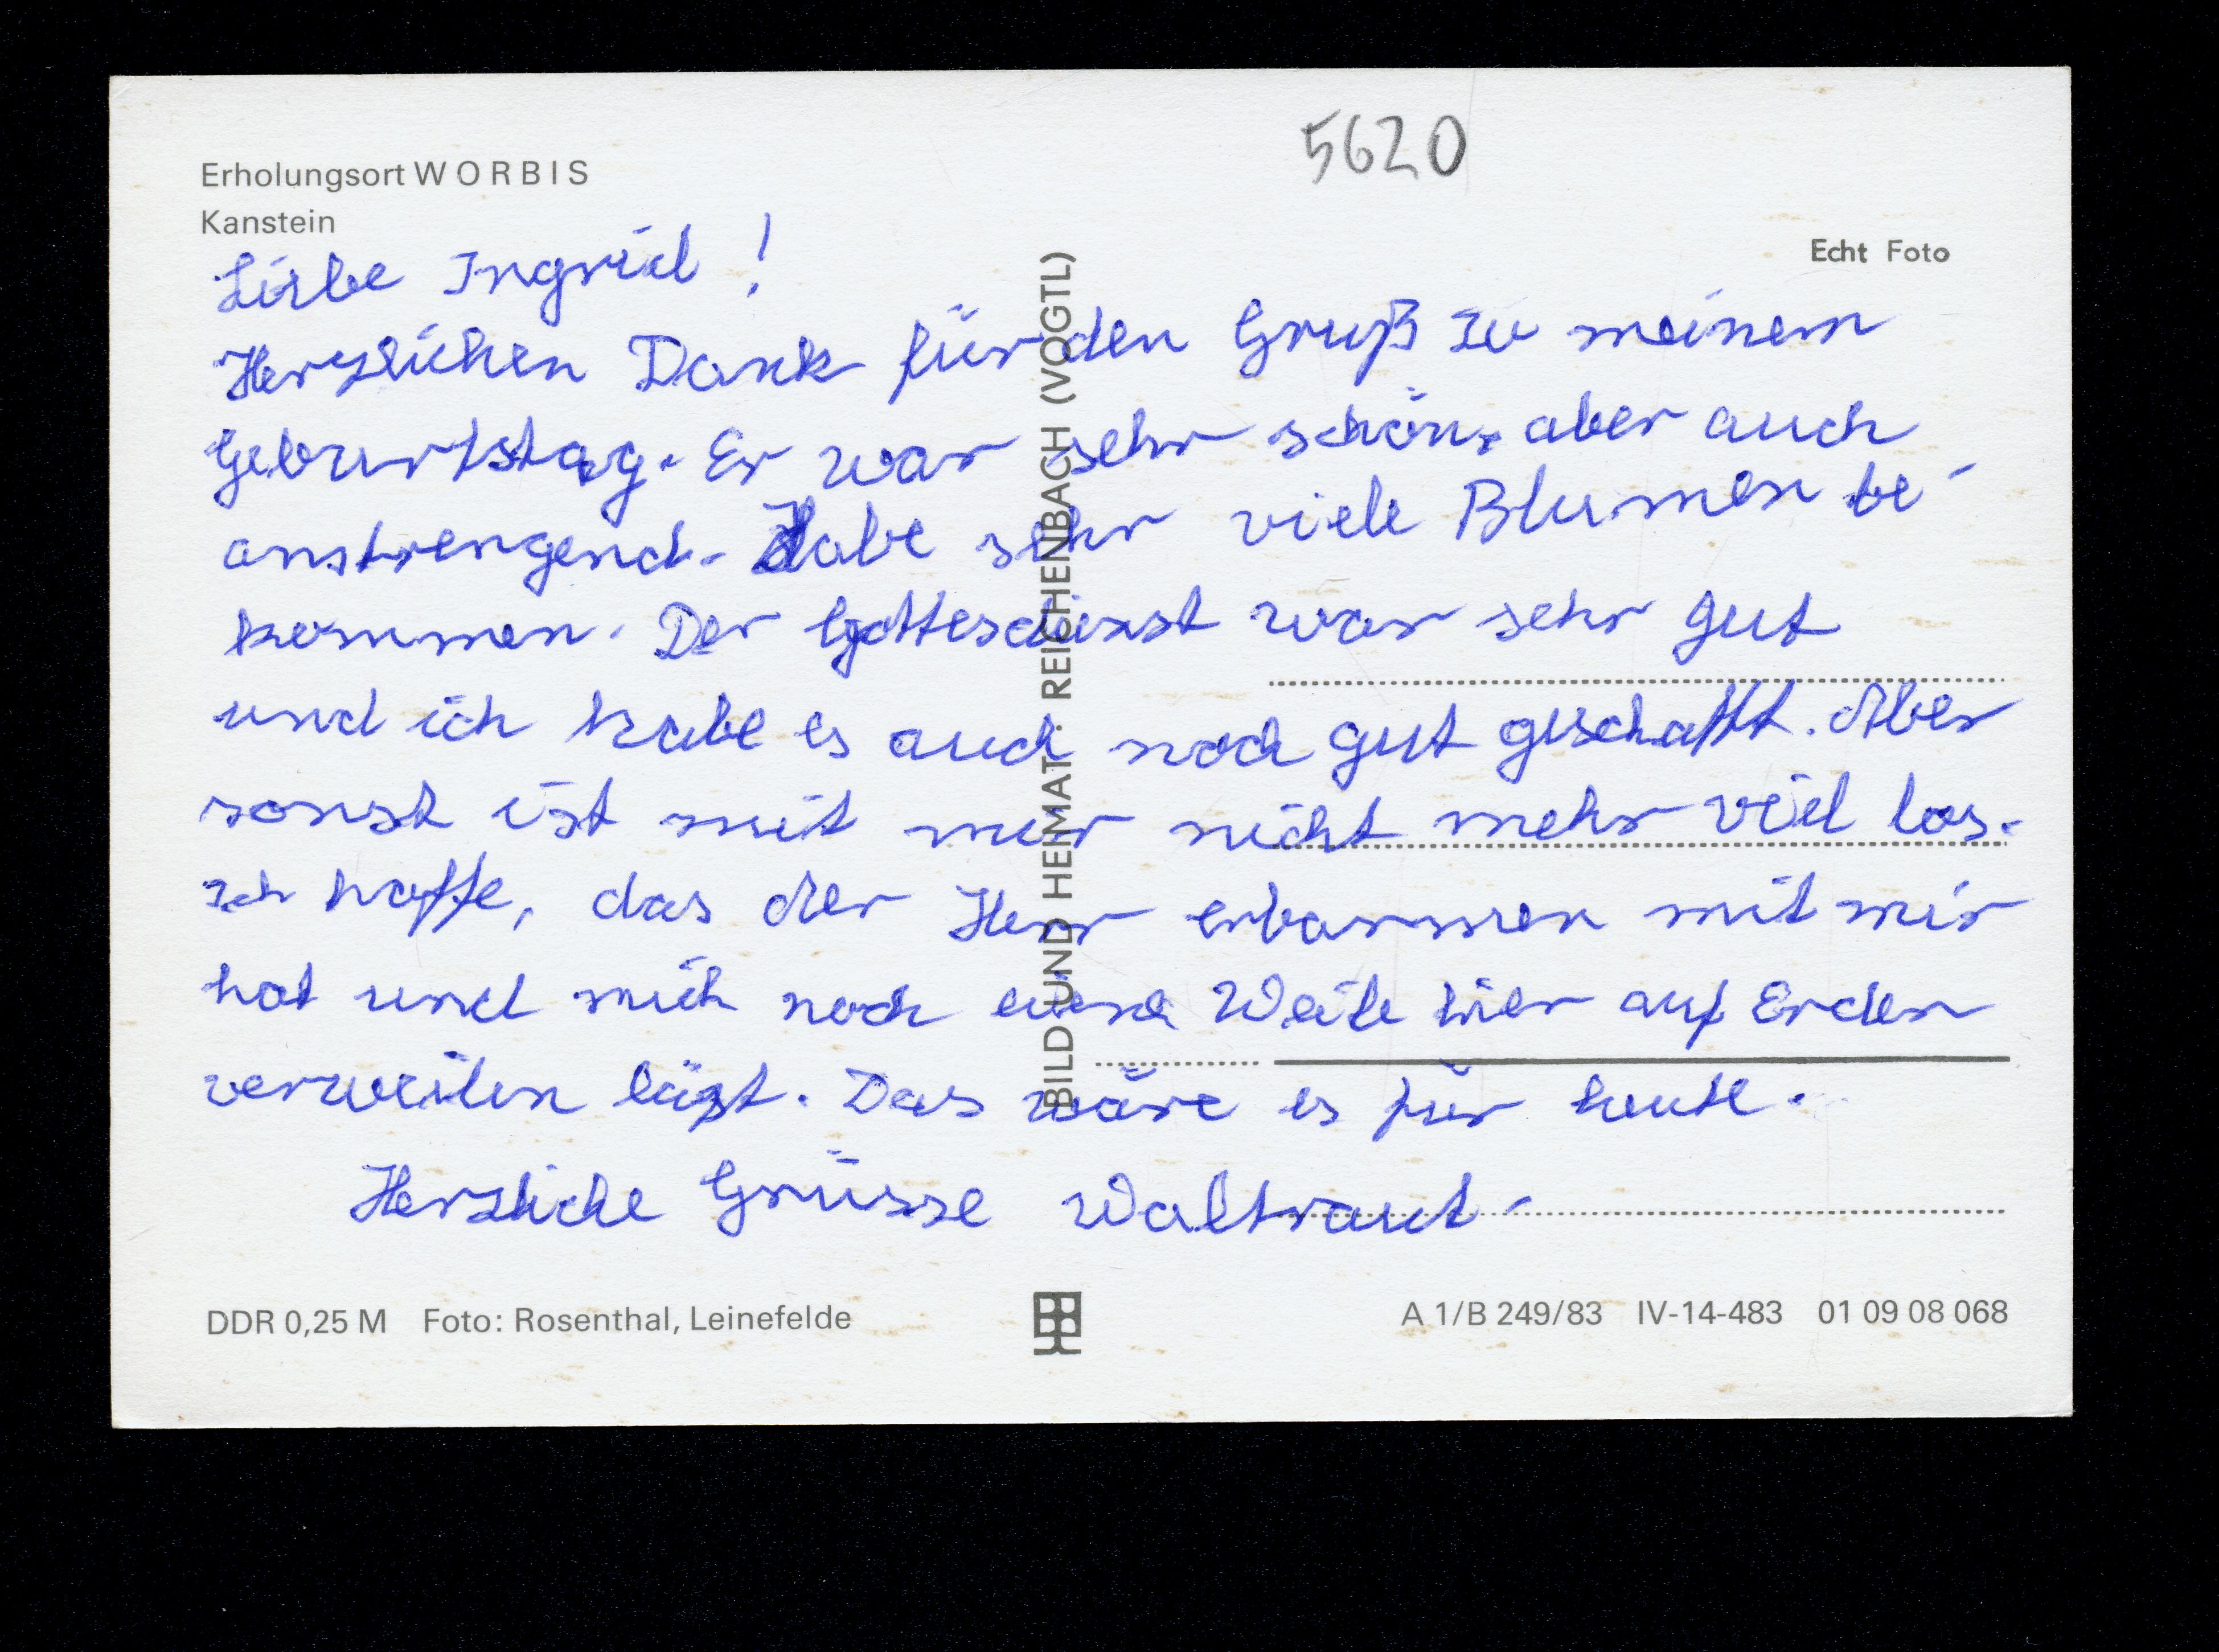 5620
Erholungsort WORBIS
Kanstein
Echt Foto
Liebe Ingrid!
Herzlichen Dank für den Gruß zu meinem
Geburtstag. Er war sehr schön, aber auch
anstrengend. Habe sehr viele Blumen be-
kommen. Der Gottesdienst war sehr gut
und ich habe es auch noch gut geschafft. Aber
sonst ist mit mir nicht mehr viel los.
Ich hoffe, das der Herr erbarmen mit mir
hat und mich noch eine Weile hier auf Erden
verweilen läßt. Das wäre es für heute.
Herzliche Grüsse Waltraut.
BILD UND HEIMAT · REICHENBACH (VOGTL)
DDR 0,25 M Foto: Rosenthal, Leinefelde
A 1/B 249/83 IV-14-483 01 09 08 068